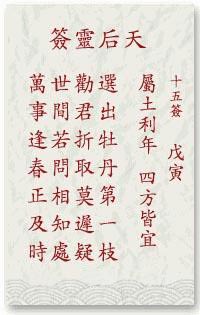 天后靈簽
十五簽 戊寅
屬土利年 四方皆宜
選出牡丹第一枝
勸君折取莫遲疑
世間若問相知處
萬事逢春正及時